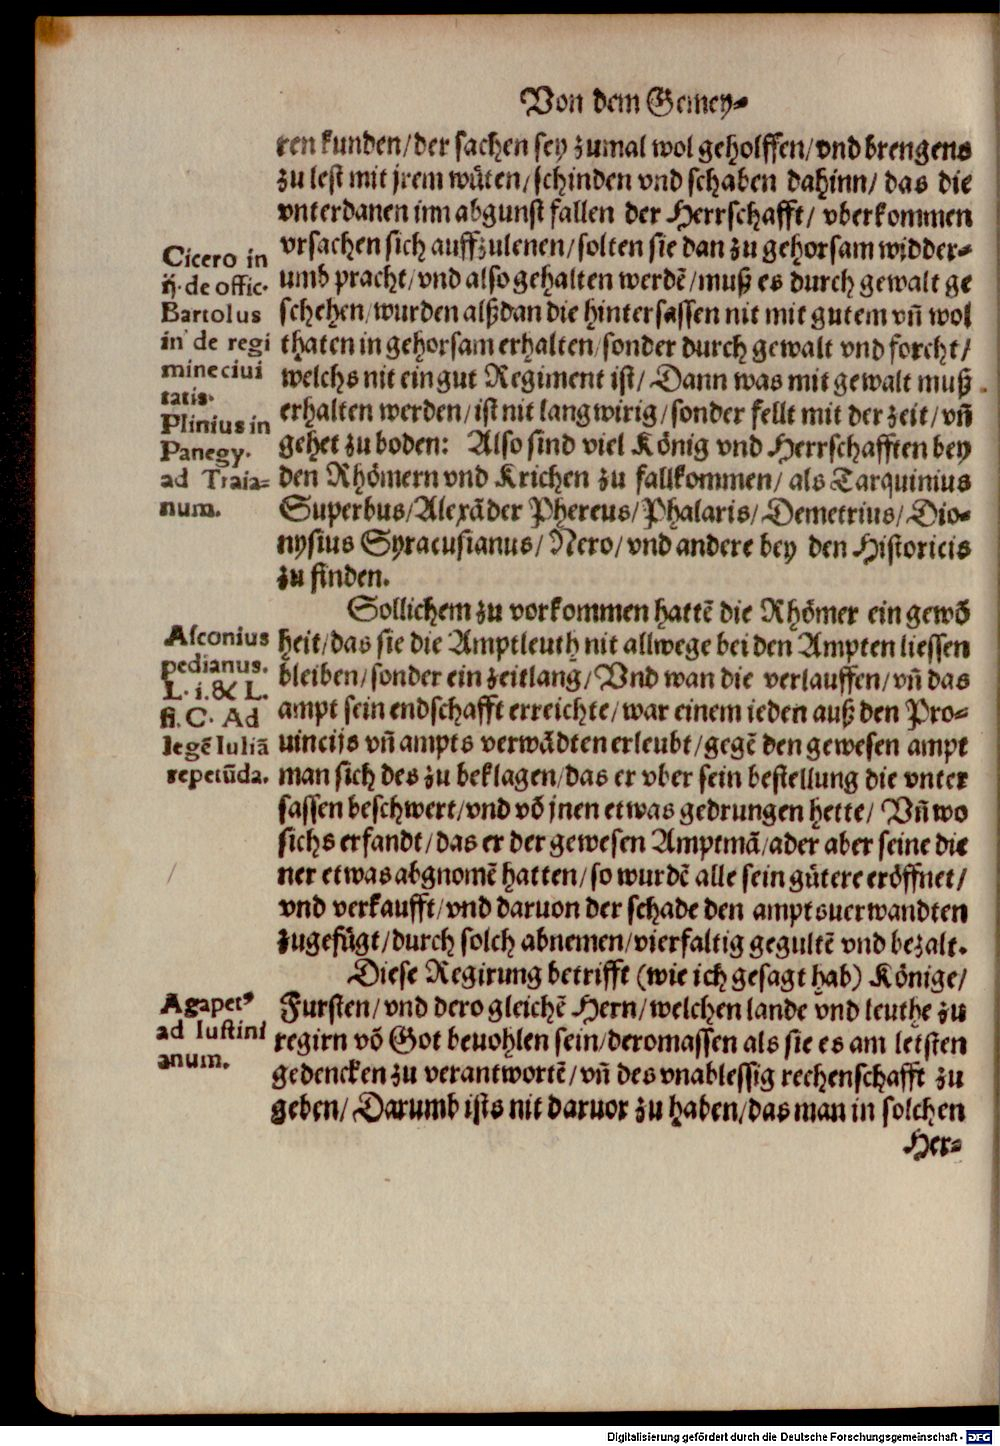 Von dem Gemey-
ren kunden/der sachen sey zumal wol geholffen/vnd brengens
zu lest mit jrem wüten/schinden vnd schaben dahinn/ das die
vnterdanen inn abgunst fallen der Herrschafft/ vberkommen
vrsachen sich auffzulenen/solten sie dan zu gehorsam widder-
umb pracht/vnd also gehalten werdē/muß es durch gewalt ge
schehen/wurden alßdan die hintersassen nit mit gutem vn̄ wol
thaten in gehorsam erhalten/sonder durch gewalt vnd forcht/
welchs nit ein gut Regiment ist/ Dann was mit gewalt muß
erhalten werden/ist nit langwirig/sonder fellt mit der zeit/vn̄
gehet zu boden: Also sind viel König vnd Herrschafften bey
den Rhömern vnd Krichen zu fallkommen/ als Tarquinius
Superbus/Alexāder Phereus/Phalaris/Demetrius/Dio-
nysius Syracusianus/ Nero/vnd andere bey den Historicis
zu finden.
Cicero in
ij. de offic.
Bartolus
in de regi
mine ciui
tatis.
Plinius in
Panegy.
ad Traia-
num.
Sollichem zu vorkommen hattē die Rhömer ein gewō
heit/das sie die Amptleuth nit allwege bei den Ampten liessen
bleiben/sonder ein zeitlang/Vnd wan die verlauffen/vn̄ das
ampt sein endschafft erreichte/war einem ieden auß den Pro-
uincijs vn̄ ampts verwādten erleubt/gegē den gewesen ampt
man sich des zu beklagen/das er vber sein bestellung die vnter
sassen beschwert/vnd vō jnen etwas gedrungen hette/ Vn̄ wo
sichs erfandt/das er der gewesen Amptmā/ader aber seine die
ner etwas abgnomē hatten/so wurdē alle sein gütere eröffnet/
vnd verkaufft/vnd daruon der schade den amptsuerwandten
zugefügt/durch solch abnemen/vierfaltig gegultē vnd bezalt.
Asconius
pedianus.
L. i. & L.
fi. C. Ad
legē Iuliā
repetūda.
Diese Regirung betrifft (wie ich gesagt hab) Könige/
Fursten/vnd dero gleichē Hern/welchen lande vnd leuthe zu
regirn vō Got beuohlen sein/deromassen als sie es am letsten
gedencken zu verantwortē/vn̄ des vnablessig rechenschafft zu
geben/ Darumb ists nit daruor zu haben/das man in solchen
Agapetꝰ
ad Iustini
anum.
Her-
Digitalisierung gefördert durch die Deutsche Forschungsgemeinschaft - DFG